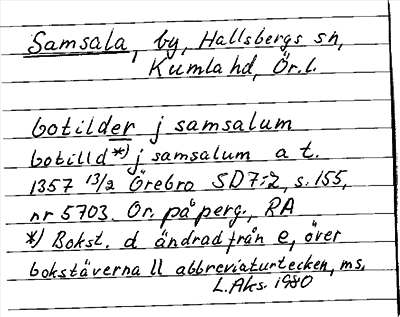 Samsala, by, Hallsbergs sn,
Kumla hd, Ör. l.
botilder j samsalum
botilld *) j samsalum a t.
1357 13/2 Örebro SD7:2, s. 155,
nr 5703. Or. på perg., RA
*) Bokst. d ändrad från e, över
bokstäverna ll abbreviaturtecken, ms.
L. Aks. 1980